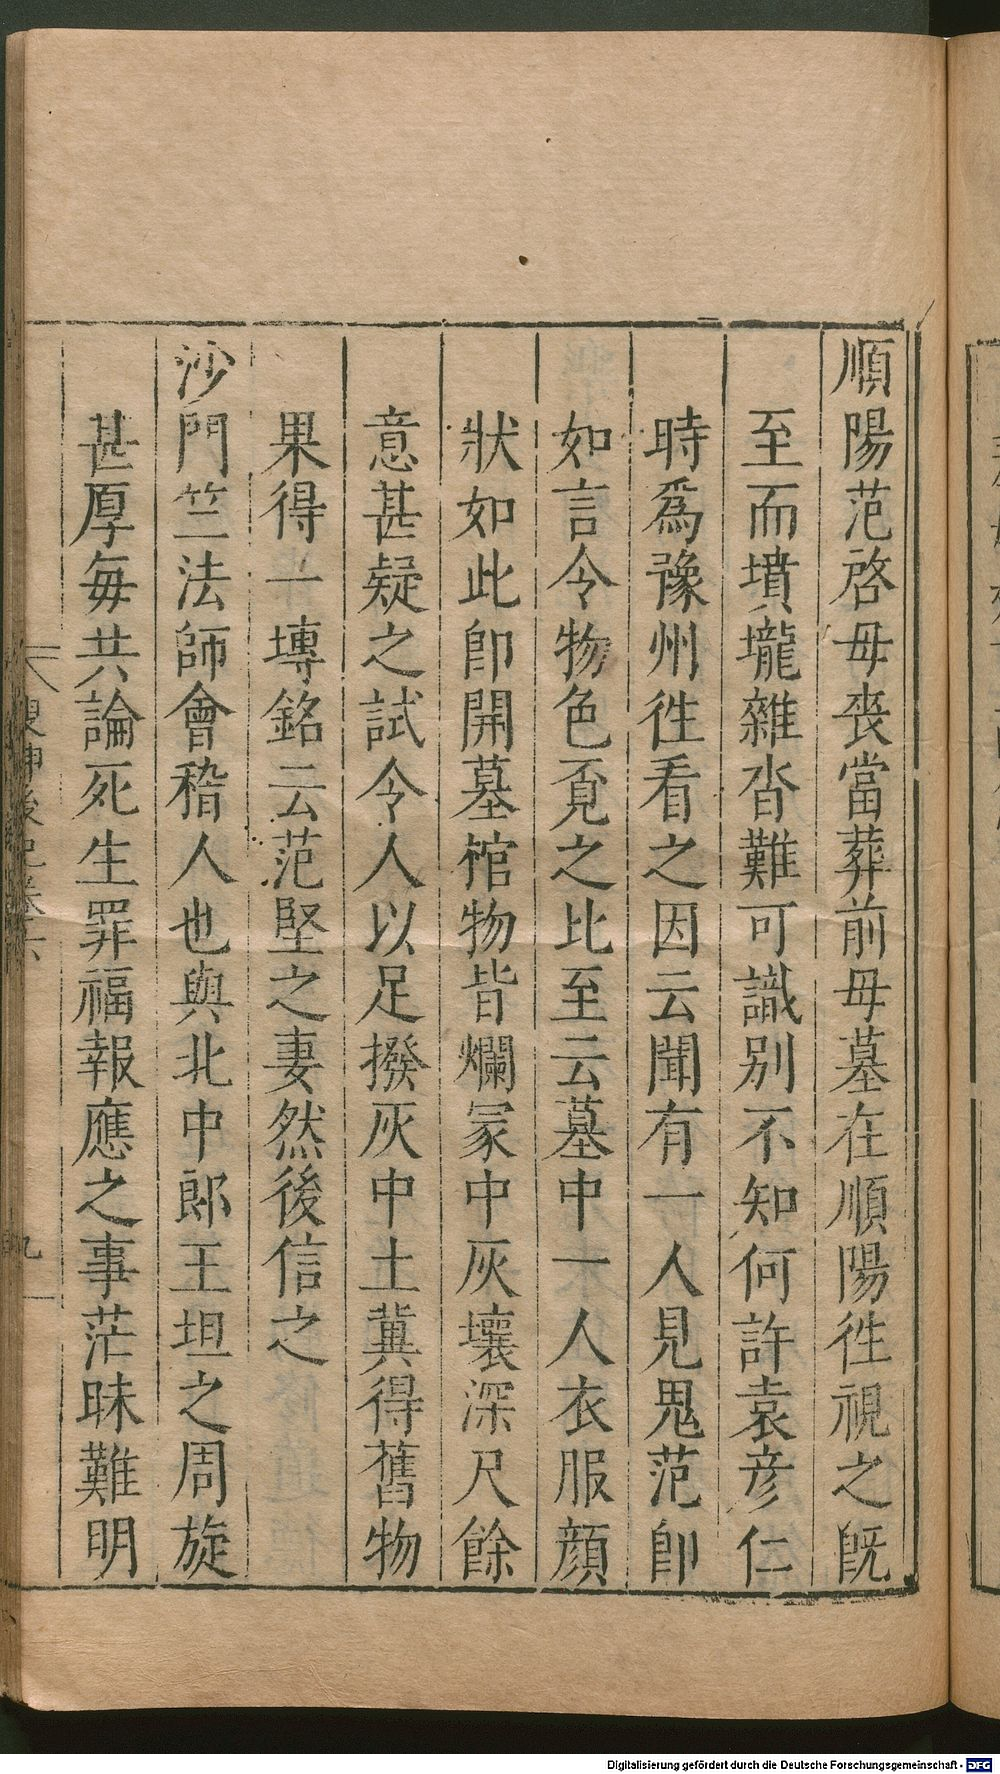 順陽范啓母喪當葬前母墓在順陽徃視之旣
至而墳壠雜沓難可識別不知何許袁彦仁
時爲豫州徃看之因云聞有一人見鬼范卽
如言令物色覔之比至云墓中一人衣服顔
狀如此卽開墓棺物皆爛冡中灰壤深尺餘
意甚疑之試令人以足撥灰中土冀得舊物
果得一塼銘云范堅之妻然後信之
沙門竺法師會稽人也與北中郎王坦之周旋
甚厚毎共論死生罪福報應之事茫昧難明
搜神後記卷六
九
Digitalisierung gefördert durch die Deutsche Forschungsgemeinschaft - DFG